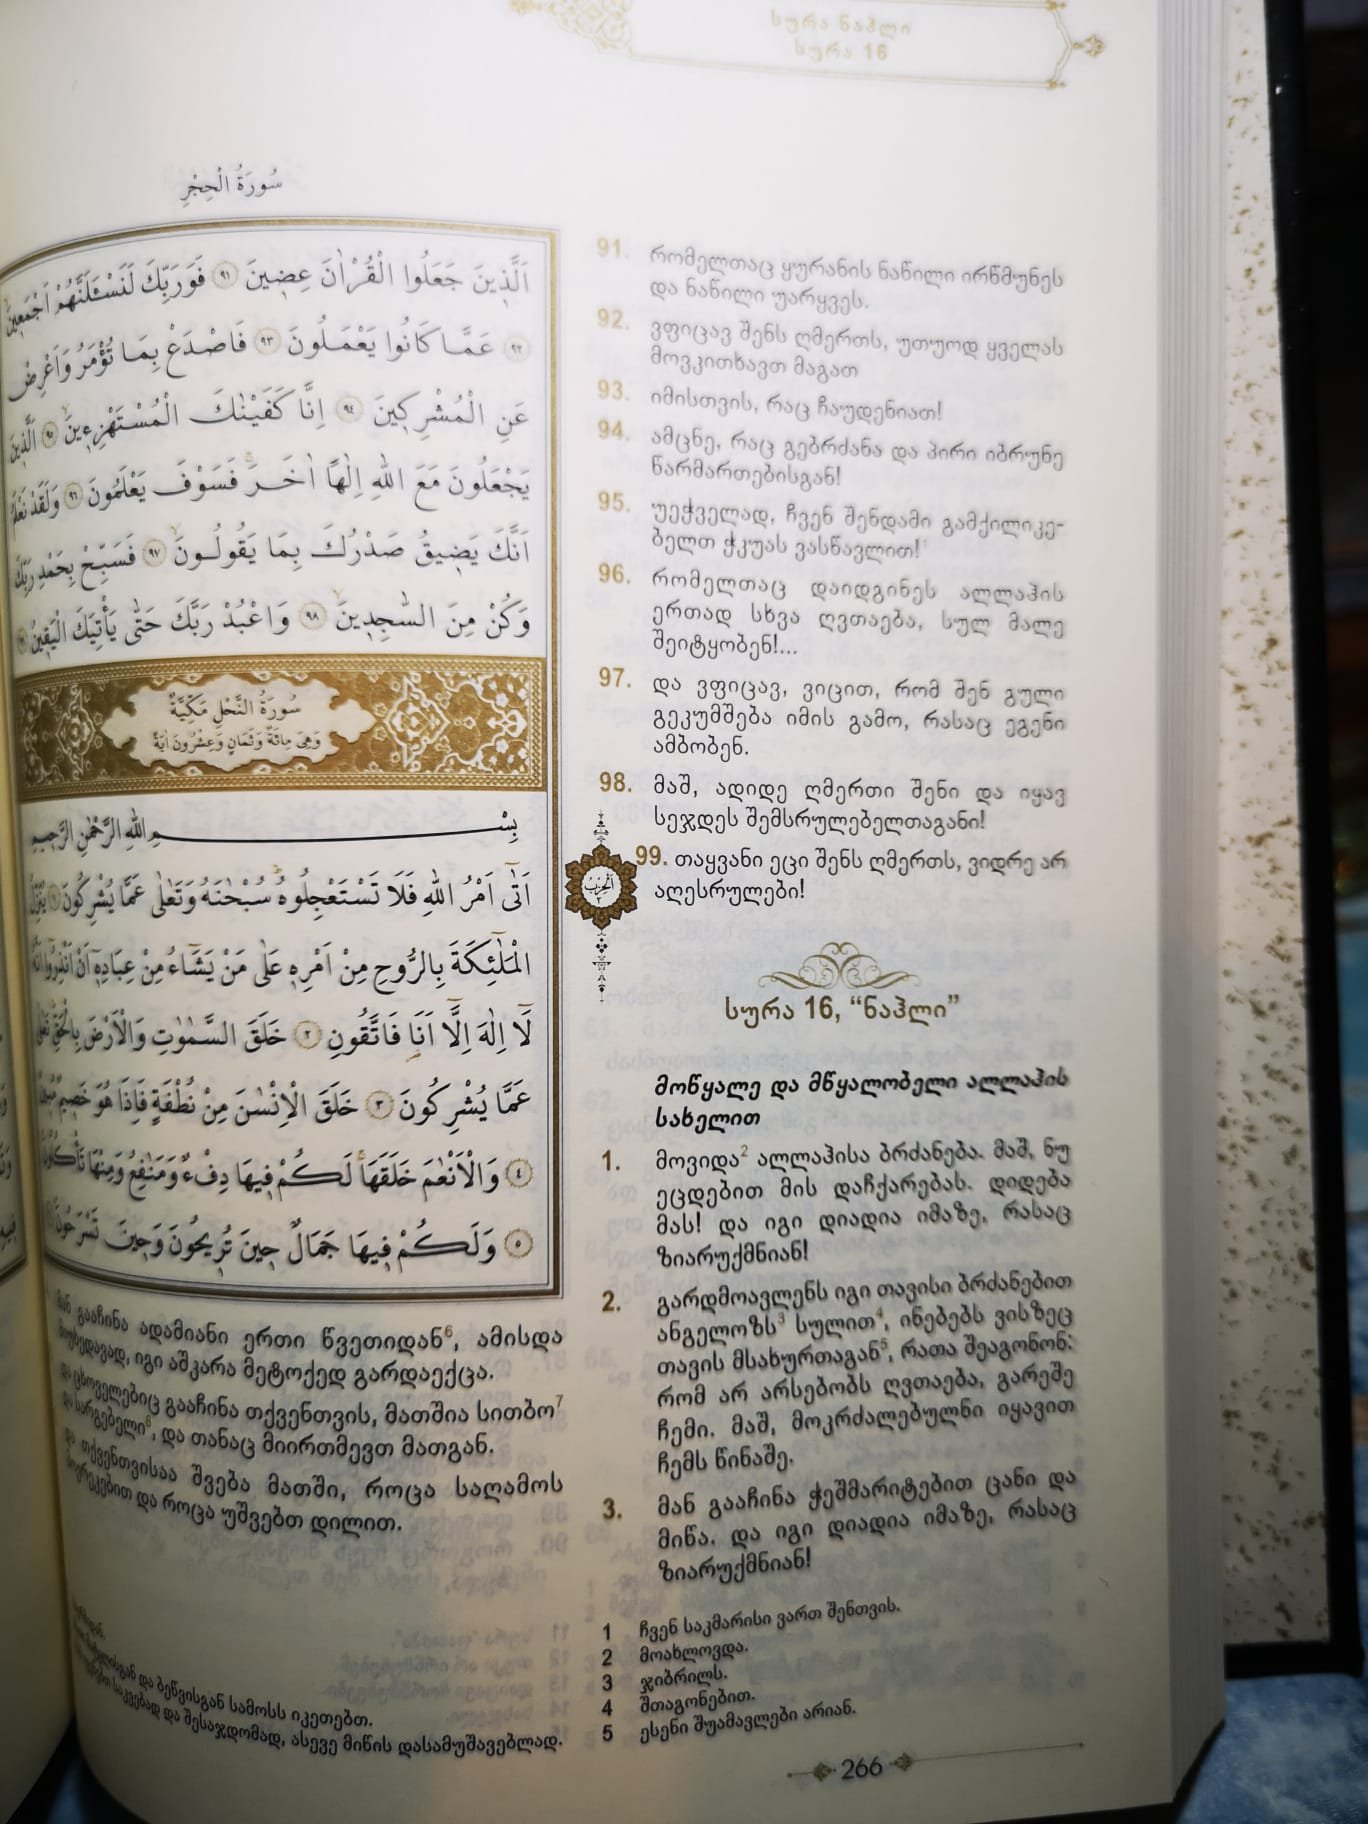 სურა ნაჰლი
სურა 16
سُورَةُ الْحِجْرِ
اَلَّذ۪ينَ جَعَلُوا الْقُرْاٰنَ عِض۪ينَ ﴿٩١﴾ فَوَرَبِّكَ لَنَسْـَٔلَنَّهُمْ اَجْمَع۪ينَۙ
﴿٩٢﴾ عَمَّا كَانُوا يَعْمَلُونَ ﴿٩٣﴾ فَاصْدَعْ بِمَا تُؤْمَرُ وَاَعْرِضْ
عَنِ الْمُشْرِك۪ينَ ﴿٩٤﴾ اِنَّا كَفَيْنَاكَ الْمُسْتَهْزِء۪ينَۙ ﴿٩٥﴾ اَلَّذ۪ينَ
يَجْعَلُونَ مَعَ اللّٰهِ اِلٰهًا اٰخَرَۚ فَسَوْفَ يَعْلَمُونَ ﴿٩٦﴾ وَلَقَدْ نَعْلَمُ
اَنَّكَ يَض۪يقُ صَدْرُكَ بِمَا يَقُولُونَۙ ﴿٩٧﴾ فَسَبِّحْ بِحَمْدِ رَبِّكَ
وَكُنْ مِنَ السَّاجِد۪ينَۙ ﴿٩٨﴾ وَاعْبُدْ رَبَّكَ حَتّٰى يَأْتِيَكَ الْيَق۪ينُ ﴿٩٩﴾
سُورَةُ النَّحْلِ مَكِّيَّةٌ
وَهِيَ مِائَةٌ وَثَمَانٍ وَعِشْرُونَ اٰيَةً
بِسْمِ اللّٰهِ الرَّحْمٰنِ الرَّح۪يمِ
اَتٰٓى اَمْرُ اللّٰهِ فَلَا تَسْتَعْجِلُوهُۜ سُبْحَانَهُ وَتَعَالٰى عَمَّا يُشْرِكُونَ ﴿١﴾ يُنَزِّلُ
الْمَلٰٓئِكَةَ بِالرُّوحِ مِنْ اَمْرِه۪ عَلٰى مَنْ يَشَٓاءُ مِنْ عِبَادِه۪ٓ اَنْ اَنْذِرُٓوا اَنَّهُ
لَٓا اِلٰهَ اِلَّٓا اَنَا۬ فَاتَّقُونِ ﴿٢﴾ خَلَقَ السَّمٰوَاتِ وَالْاَرْضَ بِالْحَقِّۜ تَعَالٰى
عَمَّا يُشْرِكُونَ ﴿٣﴾ خَلَقَ الْاِنْسَانَ مِنْ نُطْفَةٍ فَاِذَا هُوَ خَص۪يمٌ مُب۪ينٌ
﴿٤﴾ وَالْاَنْعَامَ خَلَقَهَاۚ لَكُمْ ف۪يهَا دِفْءٌ وَمَنَافِعُ وَمِنْهَا تَأْكُلُونَۖ
﴿٥﴾ وَلَكُمْ ف۪يهَا جَمَالٌ ح۪ينَ تُر۪يحُونَ وَح۪ينَ تَسْرَحُونَۖ
91. რომელთაც ყურანის ნაწილი ირწმუნეს
და ნაწილი უარყვეს.
92. ვფიცავ შენს ღმერთს, უთუოდ ყველას
მოვკითხავთ მაგათ
93. იმისთვის, რაც ჩაუდენიათ!
94. ამცნე, რაც გებრძანა და პირი იბრუნე
წარმართებისგან!
95. უეჭველად, ჩვენ შენდამი გამქილიკე-
ბელთ ჭკუას ვასწავლით!¹
96. რომელთაც დაიდგინეს ალლაჰის
ერთად სხვა ღვთაება, სულ მალე
შეიტყობენ!...
97. და ვფიცავ, ვიცით, რომ შენ გული
გეკუმშება იმის გამო, რასაც ეგენი
ამბობენ.
98. მაშ, ადიდე ღმერთი შენი და იყავ
სეჯდეს შემსრულებელთაგანი!
99. თაყვანი ეცი შენს ღმერთს, ვიდრე არ
აღესრულები!
اَلْحِزْبُ
٢
სურა 16, “ნაჰლი”
მოწყალე და მწყალობელი ალლაჰის
სახელით
1. მოვიდა² ალლაჰისა ბრძანება. მაშ, ნუ
ეცდებით მის დაჩქარებას. დიდება
მას! და იგი დიადია იმაზე, რასაც
ზიარუქმნიან!
2. გარდმოავლენს იგი თავისი ბრძანებით
ანგელოზს³ სულით⁴, ინებებს ვისზეც
თავის მსახურთაგან⁵, რათა შეაგონონ:
რომ არ არსებობს ღვთაება, გარეშე
ჩემი. მაშ, მოკრძალებულნი იყავით
ჩემს წინაშე.
3. მან გააჩინა ჭეშმარიტებით ცანი და
მიწა. და იგი დიადია იმაზე, რასაც
ზიარუქმნიან!
მან გააჩინა ადამიანი ერთი წვეთიდან⁶, ამისდა
მიუხედავად, იგი აშკარა მეტოქედ გარდაექცა.
და ცხოველებიც გააჩინა თქვენთვის, მათშია სითბო⁷
და სარგებელი⁸, და თანაც მიირთმევთ მათგან.
და თქვენთვისაა შვება მათში, როცა საღამოს
მორეკებით და როცა უშვებთ დილით.
1 ჩვენ საკმარისი ვართ შენთვის.
2 მოახლოვდა.
3 ჯიბრილს.
4 შთაგონებით.
5 ესენი შუამავლები არიან.
და ბეწვისგან სამოსს იკეთებთ.
საკვებად და შესაჯდომად, ასევე მიწის დასამუშავებლად.
266